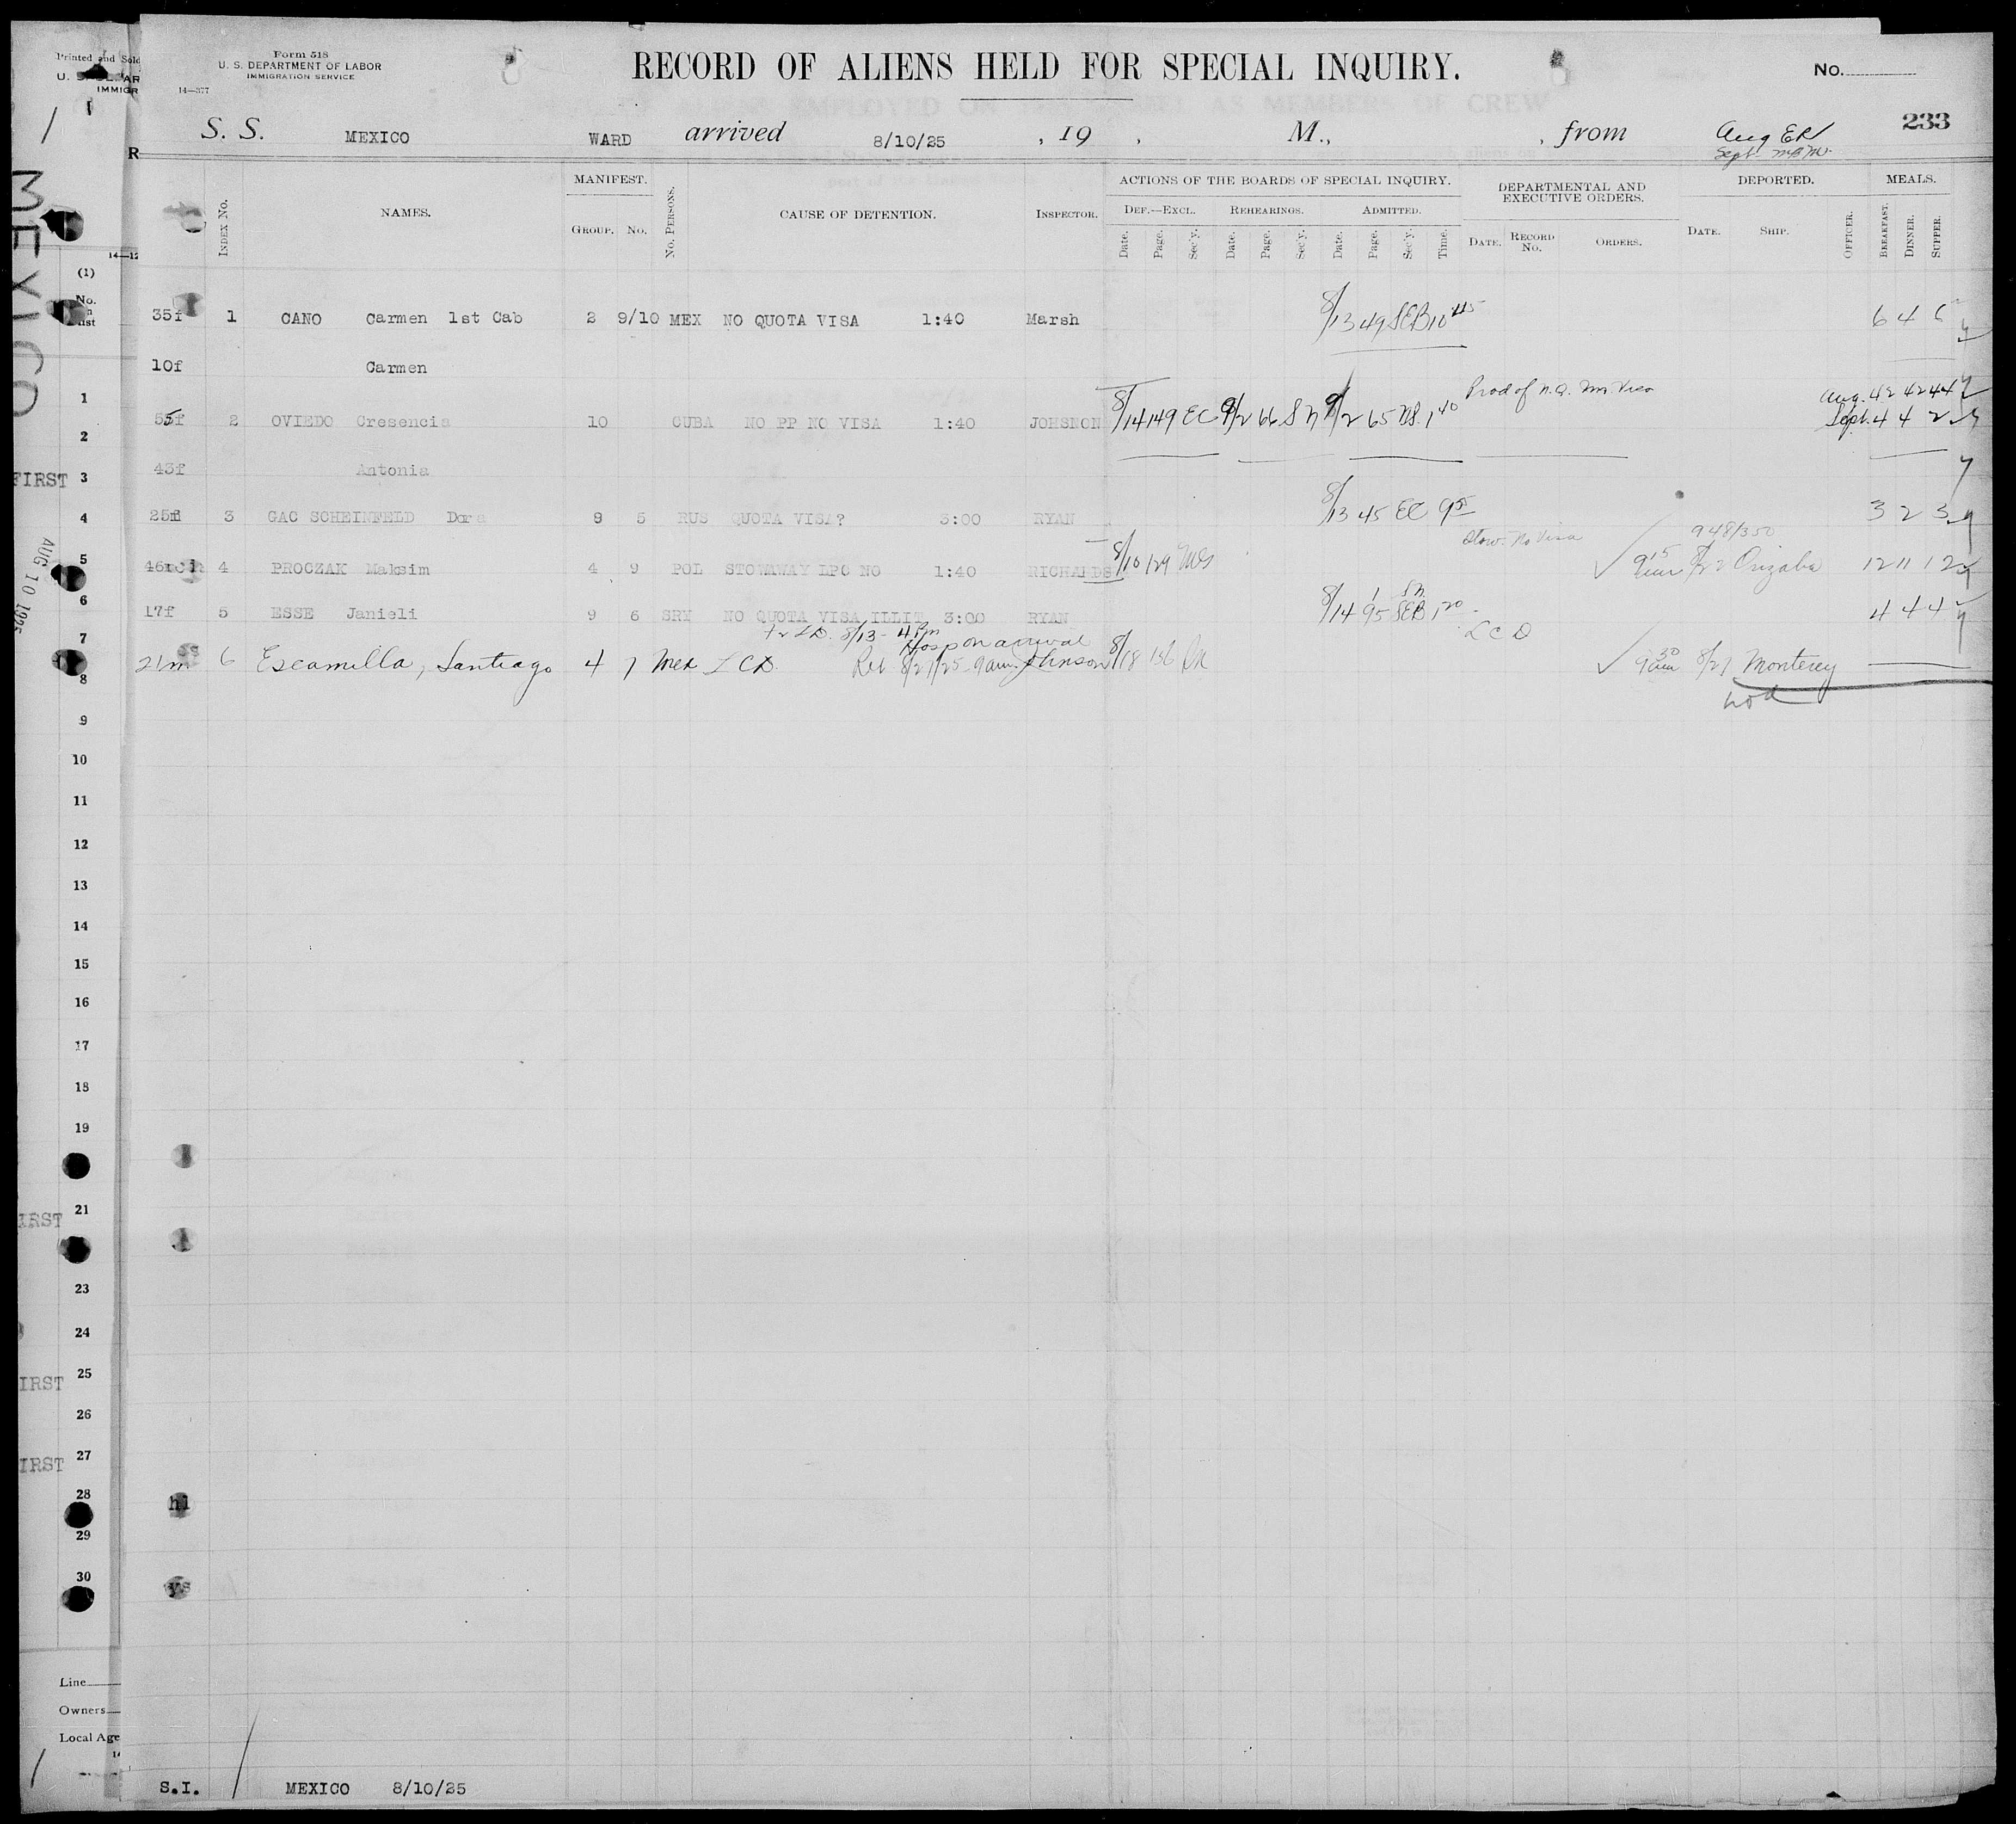 Printed and Sold
Form 518
U. S. DEPARTMENT OF LABOR
IMMIGRATION SERVICE
14—377
RECORD OF ALIENS HELD FOR SPECIAL INQUIRY.
No.
233
S. S. MEXICO WARD arrived 8/10/25 , 19 , M., , from Aug ER
Sept.
INDEX No. NAMES. MANIFEST. GROUP. No. No. PERSONS. CAUSE OF DETENTION. INSPECTOR.
ACTIONS OF THE BOARDS OF SPECIAL INQUIRY. DEF.—EXCL. REHEARINGS. ADMITTED.
Date. Page. Sec'y. Date. Page. Sec'y. Date. Page. Sec'y. Time.
DEPARTMENTAL AND EXECUTIVE ORDERS. DATE. RECORD No. ORDERS.
DEPORTED. DATE. SHIP. OFFICER.
MEALS. BREAKFAST. DINNER. SUPPER.
35f 1 CANO Carmen 1st Cab 2 9/10 MEX NO QUOTA VISA 1:40 Marsh 8/13 49 SEB 10 45 6 4 6
10f Carmen
55f 2 OVIEDO Cresencia 10 CUBA NO PP NO VISA 1:40 JOHSNON 8/14 149 EC 9/2 66 S N 9/2 65 1 40 Prod of n.q. Visa Aug. 42 42 44
Sept. 4 4 2
43f Antonia
25f 3 GAC SCHEINFELD Dora 9 5 RUS QUOTA VISA? 3:00 RYAN 8/13 45 EC 9 3 2 3
Stow. No Visa 948/350
46m 4 PROCZAK Maksim 4 9 POL STOWAWAY LPC NO 1:40 RICHARDS 8/10 129 9 15 am 8/22 Orizaba 12 11 12
17f 5 ESSE Janieli 9 6 SRY NO QUOTA VISA ILLIT 3:00 RYAN 8/14 95 SEB 1 20 4 4 4
8/13 - 4 Pm
Hosp on arrival
L C D
21m 6 Escamilla, Santiago 4 7 Mex L C D. 8/27/25 9 am. Johnson 8/18 156 9 30 am 8/27 Monterey
MEXICO
AUG 10 1925
FIRST
IRST
IRST
IRST
(1)
14—12
1
2
3
4
5
6
7
8
9
10
11
12
13
14
15
16
17
18
19
21
23
24
25
26
27
28
29
30
Line
Owners
Local Age
S.I. MEXICO 8/10/25